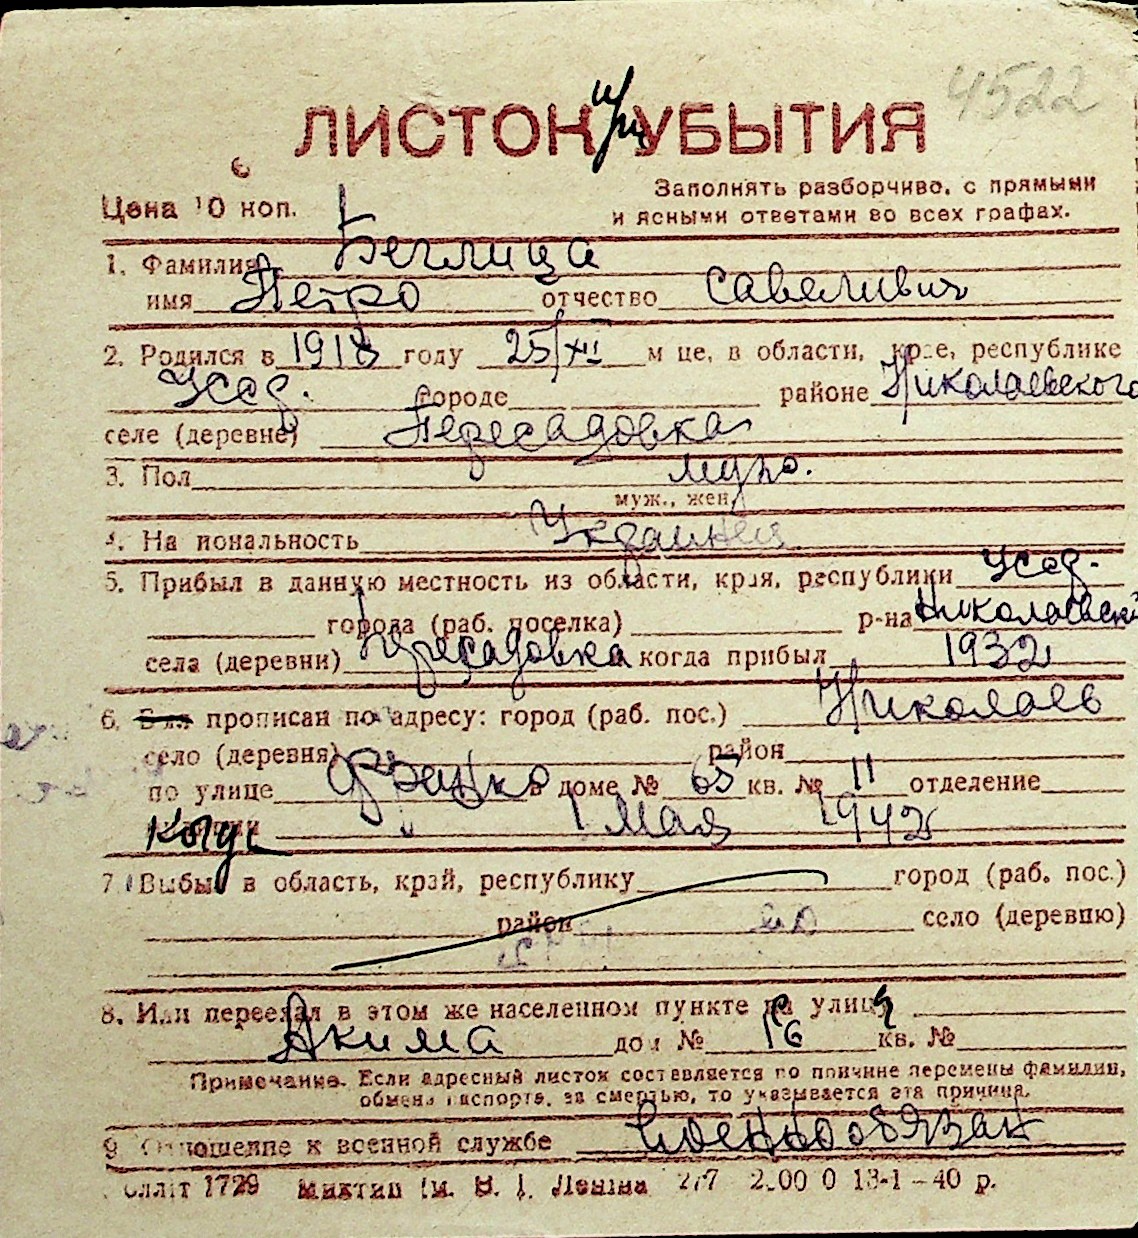 4522
ЛИСТОК при УБЫТИЯ
Цена 10 коп.
Заполнять разборчиво, с прямыми
и ясными ответами во всех графах.
1. Фамилия Беглица
имя Петро отчество Савеливич
2. Родился в 1918 году 25/XII м це, в области, крае, республике
Усед. городе районе Николаевского
селе (деревне) Пересадовка
3. Пол муж.
муж., жен.
4. На иональность Украинец
5. Прибыл в данную местность из области, края, республики Усед.
города (раб. поселка) р-на Николаевский
села (деревни) Пересадовка когда прибыл 1932
6. прописан по адресу: город (раб. пос.) Николаев
село (деревня) район
по улице Франко в доме № 65 кв. № 11 отделение
1 мая 1942
7. Выбыл в область, край, республику город (раб. пос.)
район село (деревню)
8. Или переехал в этом же населенном пункте на улицу
Акима дом № 16 кв. №
Примечание. Если адресный листок составляется по причине перемены фамилии,
обмена паспорта, за смертью, то указывается эта причина.
9. Отношение к военной службе Военнообязан
оллит 1729 Миктип им. В. І. Леніна 277 2.00 0 13-1-40 р.